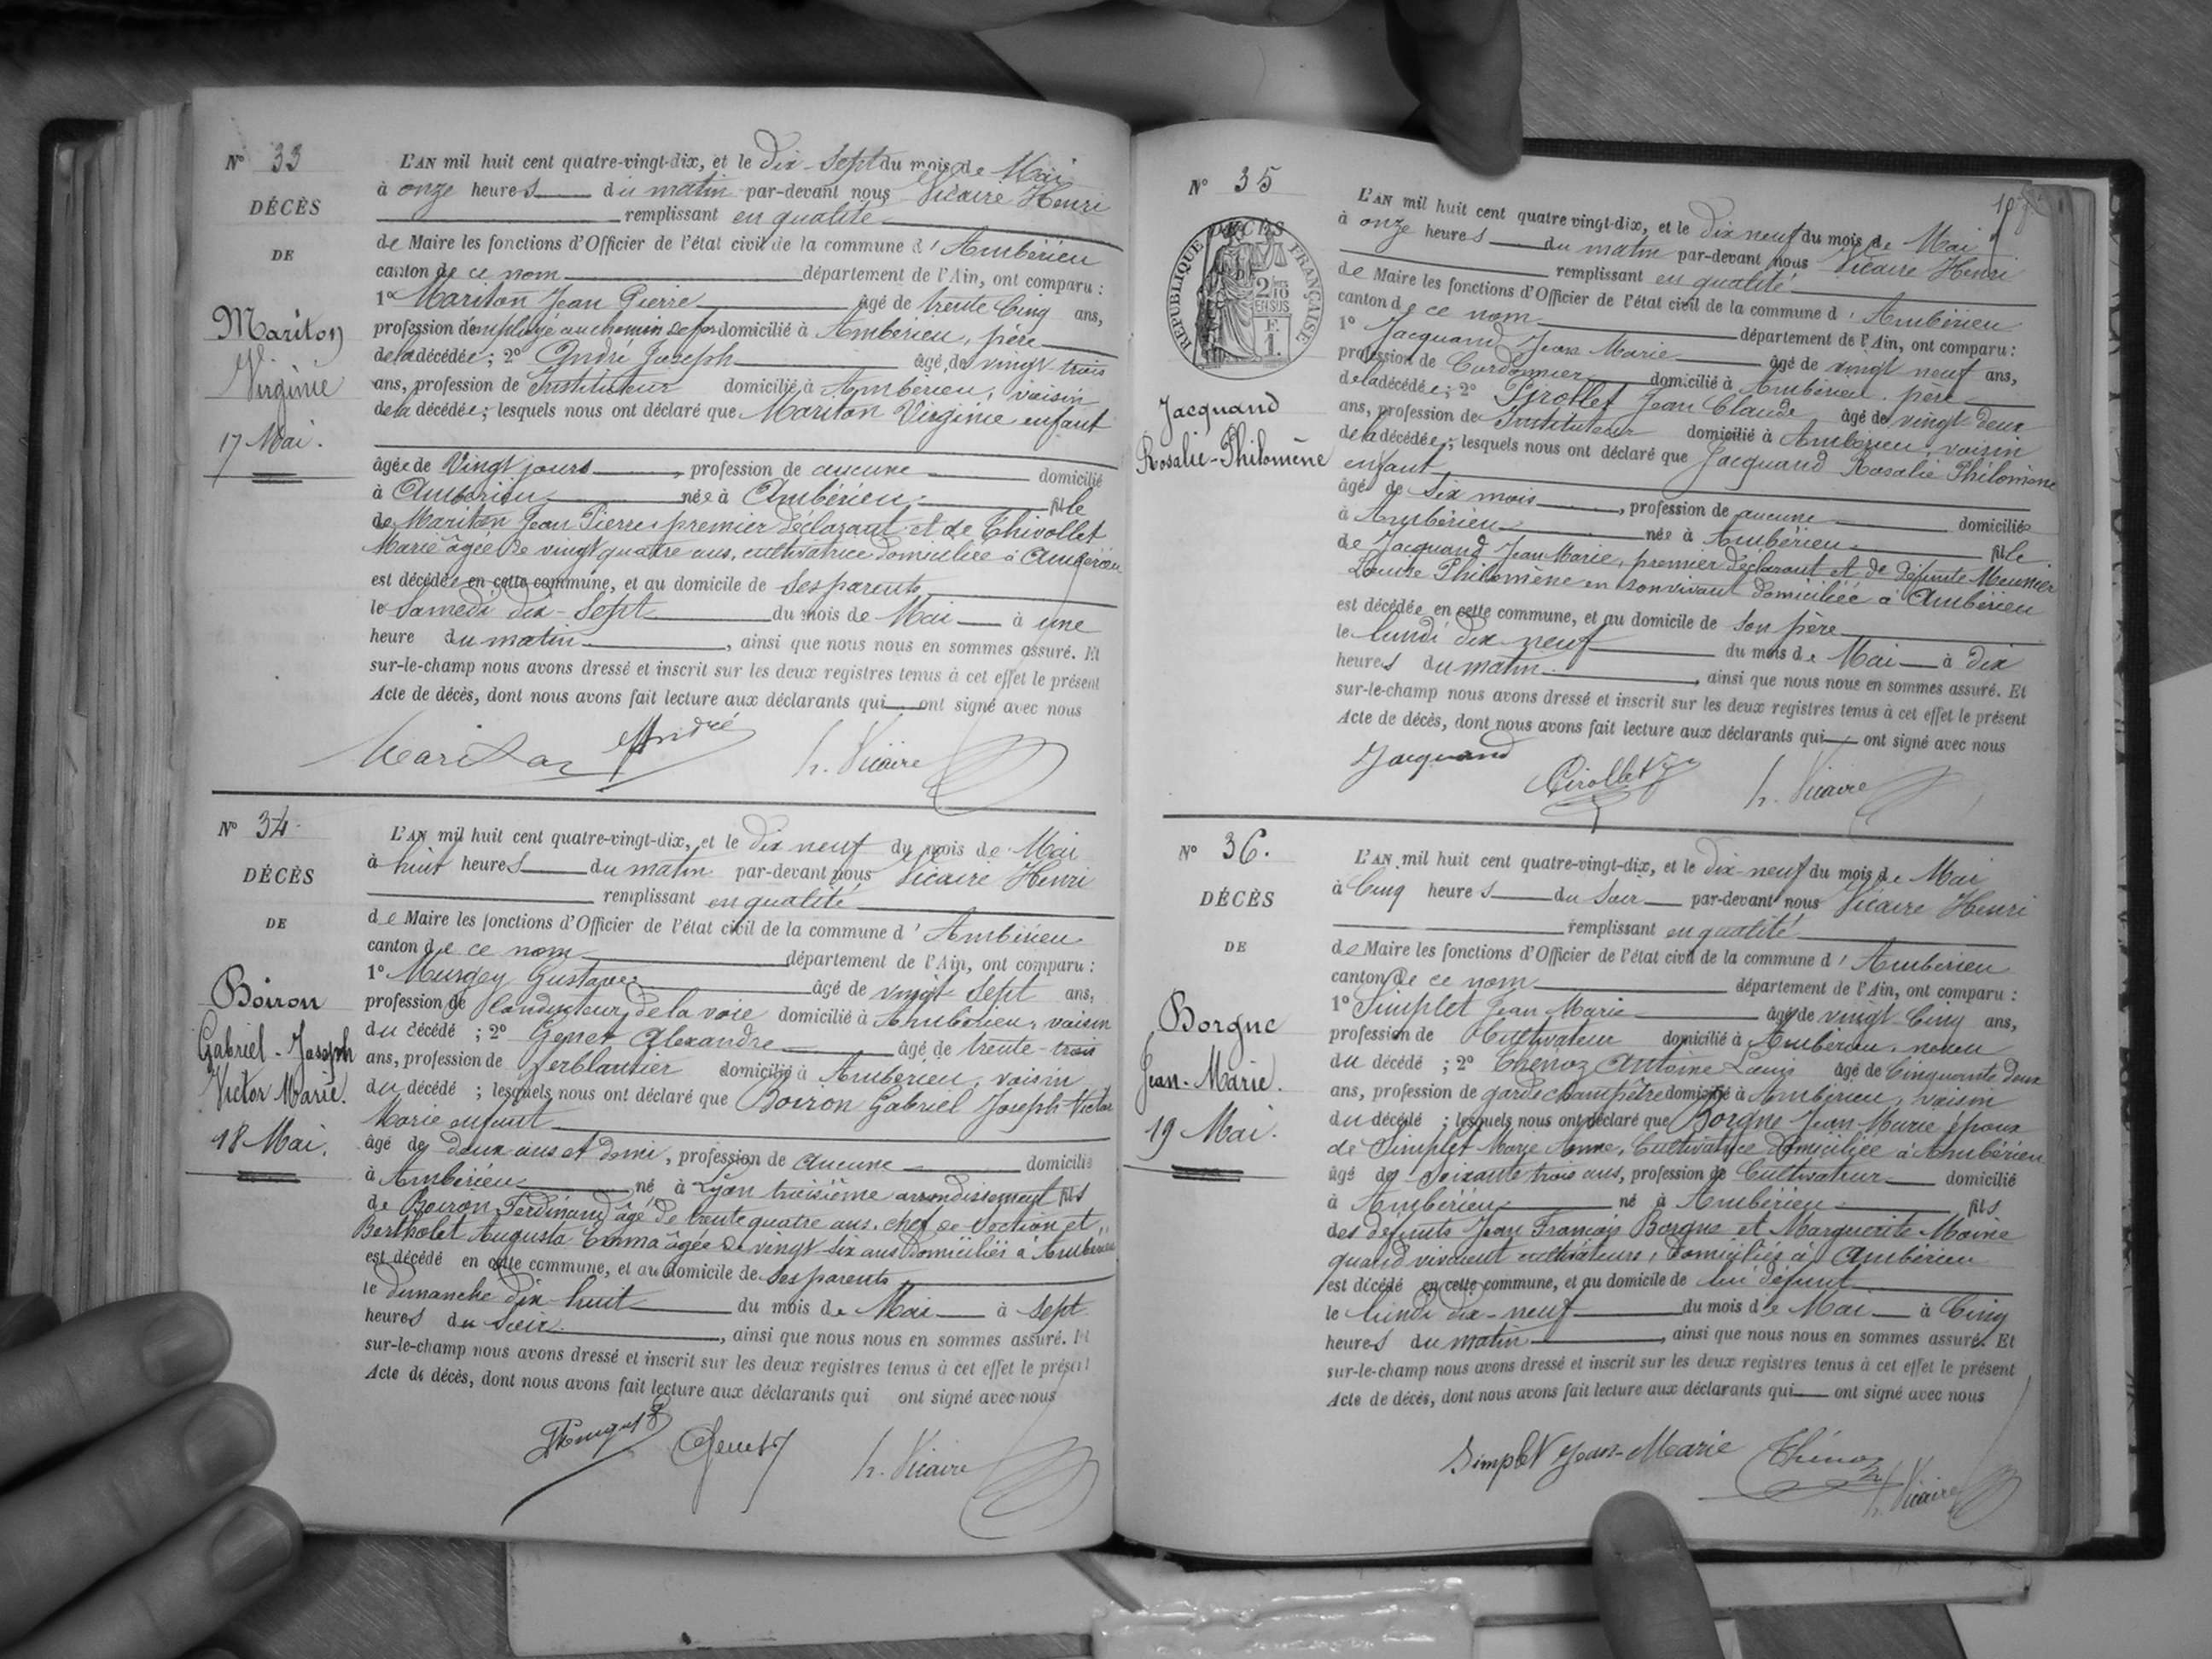 N° 33
DÉCÈS
DE
Mariton
Virginie
17 Mai.
L'AN mil huit cent quatre-vingt-dix, et le dix-sept du mois de Mai
à onze heures du matin par-devant nous Vicaire Henri
remplissant en qualité
de Maire les fonctions d'Officier de l'état civil de la commune d'Ambérieu
canton de ce nom département de l'Ain, ont comparu :
1° Mariton Jean Pierre âgé de trente cinq ans,
profession d'employé au chemin de fer domicilié à Ambérieu, père
de la décédée ; 2° André Joseph âgé de vingt trois
ans, profession de Instituteur domicilié à Ambérieu, voisin
de la décédée ; lesquels nous ont déclaré que Mariton Virginie enfant
âgée de Vingt jours, profession de aucune domicilié
à Ambérieu née à Ambérieu fille
de Mariton Jean Pierre premier déclarant et de Thivollet
Marie âgée de vingt quatre ans, cultivatrice domiciliée à Ambérieu
est décédée en cette commune, et au domicile de ses parents
le Samedi dix-sept du mois de Mai à une
heure du matin, ainsi que nous nous en sommes assuré. Et
sur-le-champ nous avons dressé et inscrit sur les deux registres tenus à cet effet le présent
Acte de décès, dont nous avons fait lecture aux déclarants qui ont signé avec nous
Mariton André h. Vicaire
N° 34
DÉCÈS
DE
Boiron
Gabriel-Joseph
Victor Marie.
18 Mai.
L'AN mil huit cent quatre-vingt-dix, et le dix neuf du mois de Mai
à huit heures du matin par-devant nous Vicaire Henri
remplissant en qualité
de Maire les fonctions d'Officier de l'état civil de la commune d'Ambérieu
canton de ce nom département de l'Ain, ont comparu :
1° Gustave âgé de vingt sept ans,
profession de Conducteur de la voie domicilié à Ambérieu, voisin
du décédé ; 2° Genet Alexandre âgé de trente-trois
ans, profession de ferblantier domicilié à Ambérieu, voisin
du décédé ; lesquels nous ont déclaré que Boiron Gabriel Joseph Victor
Marie enfant
âgé de deux ans et demi, profession de aucune domicilié
à Ambérieu né à Lyon troisième arrondissement fils
de Boiron Ferdinand âgé de trente quatre ans, chef de section et
Bertholet Augusta Emma âgée de vingt six ans domiciliés à Ambérieu
est décédé en cette commune, et au domicile de ses parents
le dimanche dix huit du mois de Mai à sept
heures du soir, ainsi que nous nous en sommes assuré. Et
sur-le-champ nous avons dressé et inscrit sur les deux registres tenus à cet effet le présent
Acte de décès, dont nous avons fait lecture aux déclarants qui ont signé avec nous
Genet h. Vicaire
N° 35
DÉCÈS
RÉPUBLIQUE FRANÇAISE
2/10 EN SUS
F. 1.
Jacquand
Rosalie-Philomène
L'AN mil huit cent quatre vingt-dix, et le dix neuf du mois de Mai
à onze heures du matin par-devant nous Vicaire Henri
remplissant en qualité
de Maire les fonctions d'Officier de l'état civil de la commune d'Ambérieu
canton de ce nom département de l'Ain, ont comparu :
1° Jacquand Jean Marie âgé de vingt neuf ans,
profession de Cordonnier domicilié à Ambérieu, père
de la décédée ; 2° Pirollet Jean Claude âgé de vingt deux
ans, profession de Instituteur domicilié à Ambérieu, voisin
de la décédée ; lesquels nous ont déclaré que Jacquand Rosalie Philomène
enfant
âgé de six mois, profession de aucune domicilié
à Ambérieu née à Ambérieu fille
de Jacquand Jean Marie, premier déclarant et de défunte Meunier
Louise Philomène en son vivant domiciliée à Ambérieu
est décédée en cette commune, et au domicile de son père
le lundi dix neuf du mois de Mai à dix
heures du matin, ainsi que nous nous en sommes assuré. Et
sur-le-champ nous avons dressé et inscrit sur les deux registres tenus à cet effet le présent
Acte de décès, dont nous avons fait lecture aux déclarants qui ont signé avec nous
Jacquand Pirollet h. Vicaire
N° 36.
DÉCÈS
DE
Borgne
Jean-Marie.
19 Mai.
L'AN mil huit cent quatre-vingt-dix, et le dix-neuf du mois de Mai
à Cinq heures du soir par-devant nous Vicaire Henri
remplissant en qualité
de Maire les fonctions d'Officier de l'état civil de la commune d'Ambérieu
canton de ce nom département de l'Ain, ont comparu :
1° Simplet Jean Marie âgé de vingt-Cinq ans,
profession de Cultivateur domicilié à Ambérieu, neveu
du décédé ; 2° Chenoz Antoine Louis âgé de Cinquante deux
ans, profession de garde champêtre domicilié à Ambérieu, voisin
du décédé ; lesquels nous ont déclaré que Borgne Jean Marie époux
de Simplet Marie Anne, Cultivatrice domiciliée à Ambérieu
âgé de Soixante trois ans, profession de Cultivateur domicilié
à Ambérieu né à Ambérieu fils
des défunts Jean François Borgne et Marguerite Moine
quand vivaient cultivateurs, domiciliés à Ambérieu
est décédé en cette commune, et au domicile de lui défunt
le lundi dix-neuf du mois de Mai à Cinq
heures du matin, ainsi que nous nous en sommes assuré. Et
sur-le-champ nous avons dressé et inscrit sur les deux registres tenus à cet effet le présent
Acte de décès, dont nous avons fait lecture aux déclarants qui ont signé avec nous
Simplet Jean-Marie Chénoz h. Vicaire